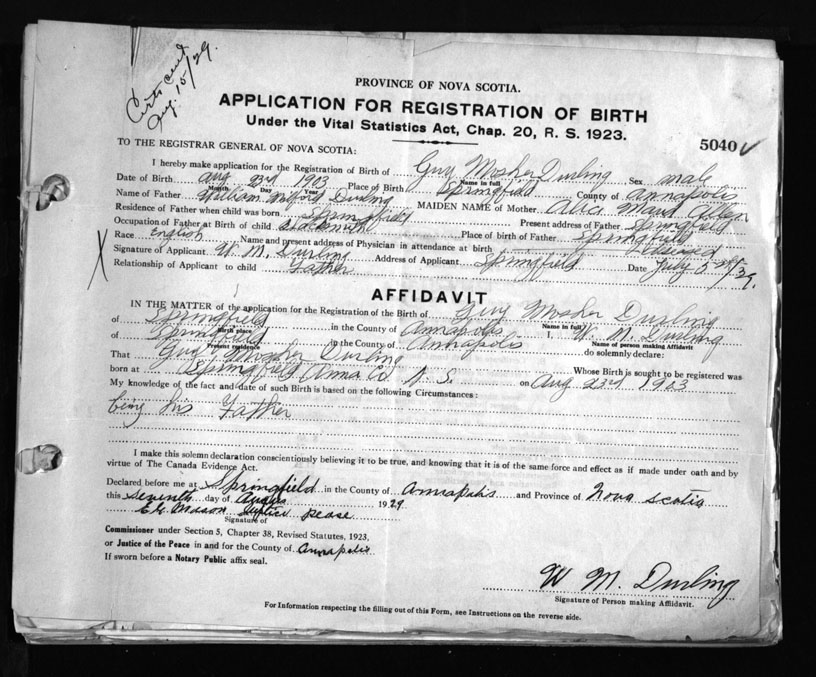 Certs sent
Aug. 15/29.
PROVINCE OF NOVA SCOTIA.
APPLICATION FOR REGISTRATION OF BIRTH
Under the Vital Statistics Act, Chap. 20, R. S. 1923.
5040
TO THE REGISTRAR GENERAL OF NOVA SCOTIA:
I hereby make application for the Registration of Birth of Guy Mosher Durling Sex male
Name in full
Date of Birth Aug 23rd 1903 Place of Birth Springfield County of Annapolis
Month Day Year
Name of Father William Milford Durling MAIDEN NAME of Mother Alice Maud
Residence of Father when child was born Springfield Present address of Father Springfield
Occupation of Father at Birth of child Blacksmith Place of birth of Father Springfield
Race English Name and present address of Physician in attendance at birth Deceased
Signature of Applicant W. M. Durling Address of Applicant Springfield Date July 5
Relationship of Applicant to child Father
AFFIDAVIT
IN THE MATTER of the application for the Registration of the Birth of Guy Mosher Durling
Name in full
of Springfield in the County of Annapolis I, W. M. Durling
Birth place Name of person making Affidavit
of Springfield in the County of Annapolis do solemnly declare:
Present residence
That Guy Mosher Durling Whose Birth is sought to be registered was
born at Springfield Anna Co N. S. on Aug 23rd 1903
My knowledge of the fact and date of such Birth is based on the following Circumstances:
being his Father
I make this solemn declaration conscientiously believing it to be true, and knowing that it is of the same force and effect as if made under oath and by
virtue of The Canada Evidence Act.
Declared before me at Springfield in the County of Annapolis and Province of Nova Scotia
this Seventh day of 1929
Mason Justice pease
Signature of
Commissioner under Section 5, Chapter 38, Revised Statutes, 1923,
or Justice of the Peace in and for the County of Annapolis
If sworn before a Notary Public affix seal.
W M. Durling
Signature of Person making Affidavit.
For Information respecting the filling out of this Form, see Instructions on the reverse side.